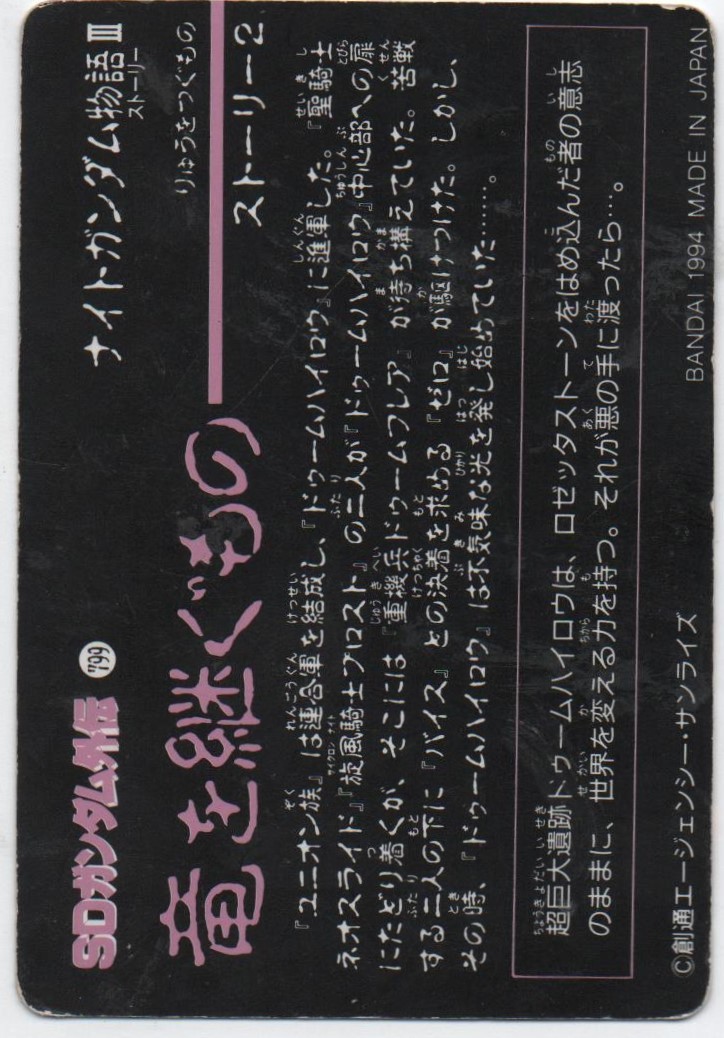 SDガンダム外伝 799
ナイトガンダム物語Ⅲ
ストーリー
竜を継ぐもの
りゅうをつぐもの
ストーリー2
『ユニオン族』は連合軍を結成し、『ドゥームハイロウ』に進軍した。『聖騎士
ネオスライド』『旋風騎士プロスト』の二人が『ドゥームハイロウ』中心部への扉
にたどり着くが、そこには『重機兵ドゥームフレア』が待ち構えていた。苦戦
する二人の下に『バイス』との決着を求める『ゼロ』が駆けつけた。しかし、
その時、『ドゥームハイロウ』は不気味な光を発し始めていた……。
超巨大遺跡ドゥームハイロウは、ロゼッタストーンをはめ込んだ者の意志
のままに、世界を変える力を持つ。それが悪の手に渡ったら…。
©創通エージェンシー・サンライズ
BANDAI 1994 MADE IN JAPAN